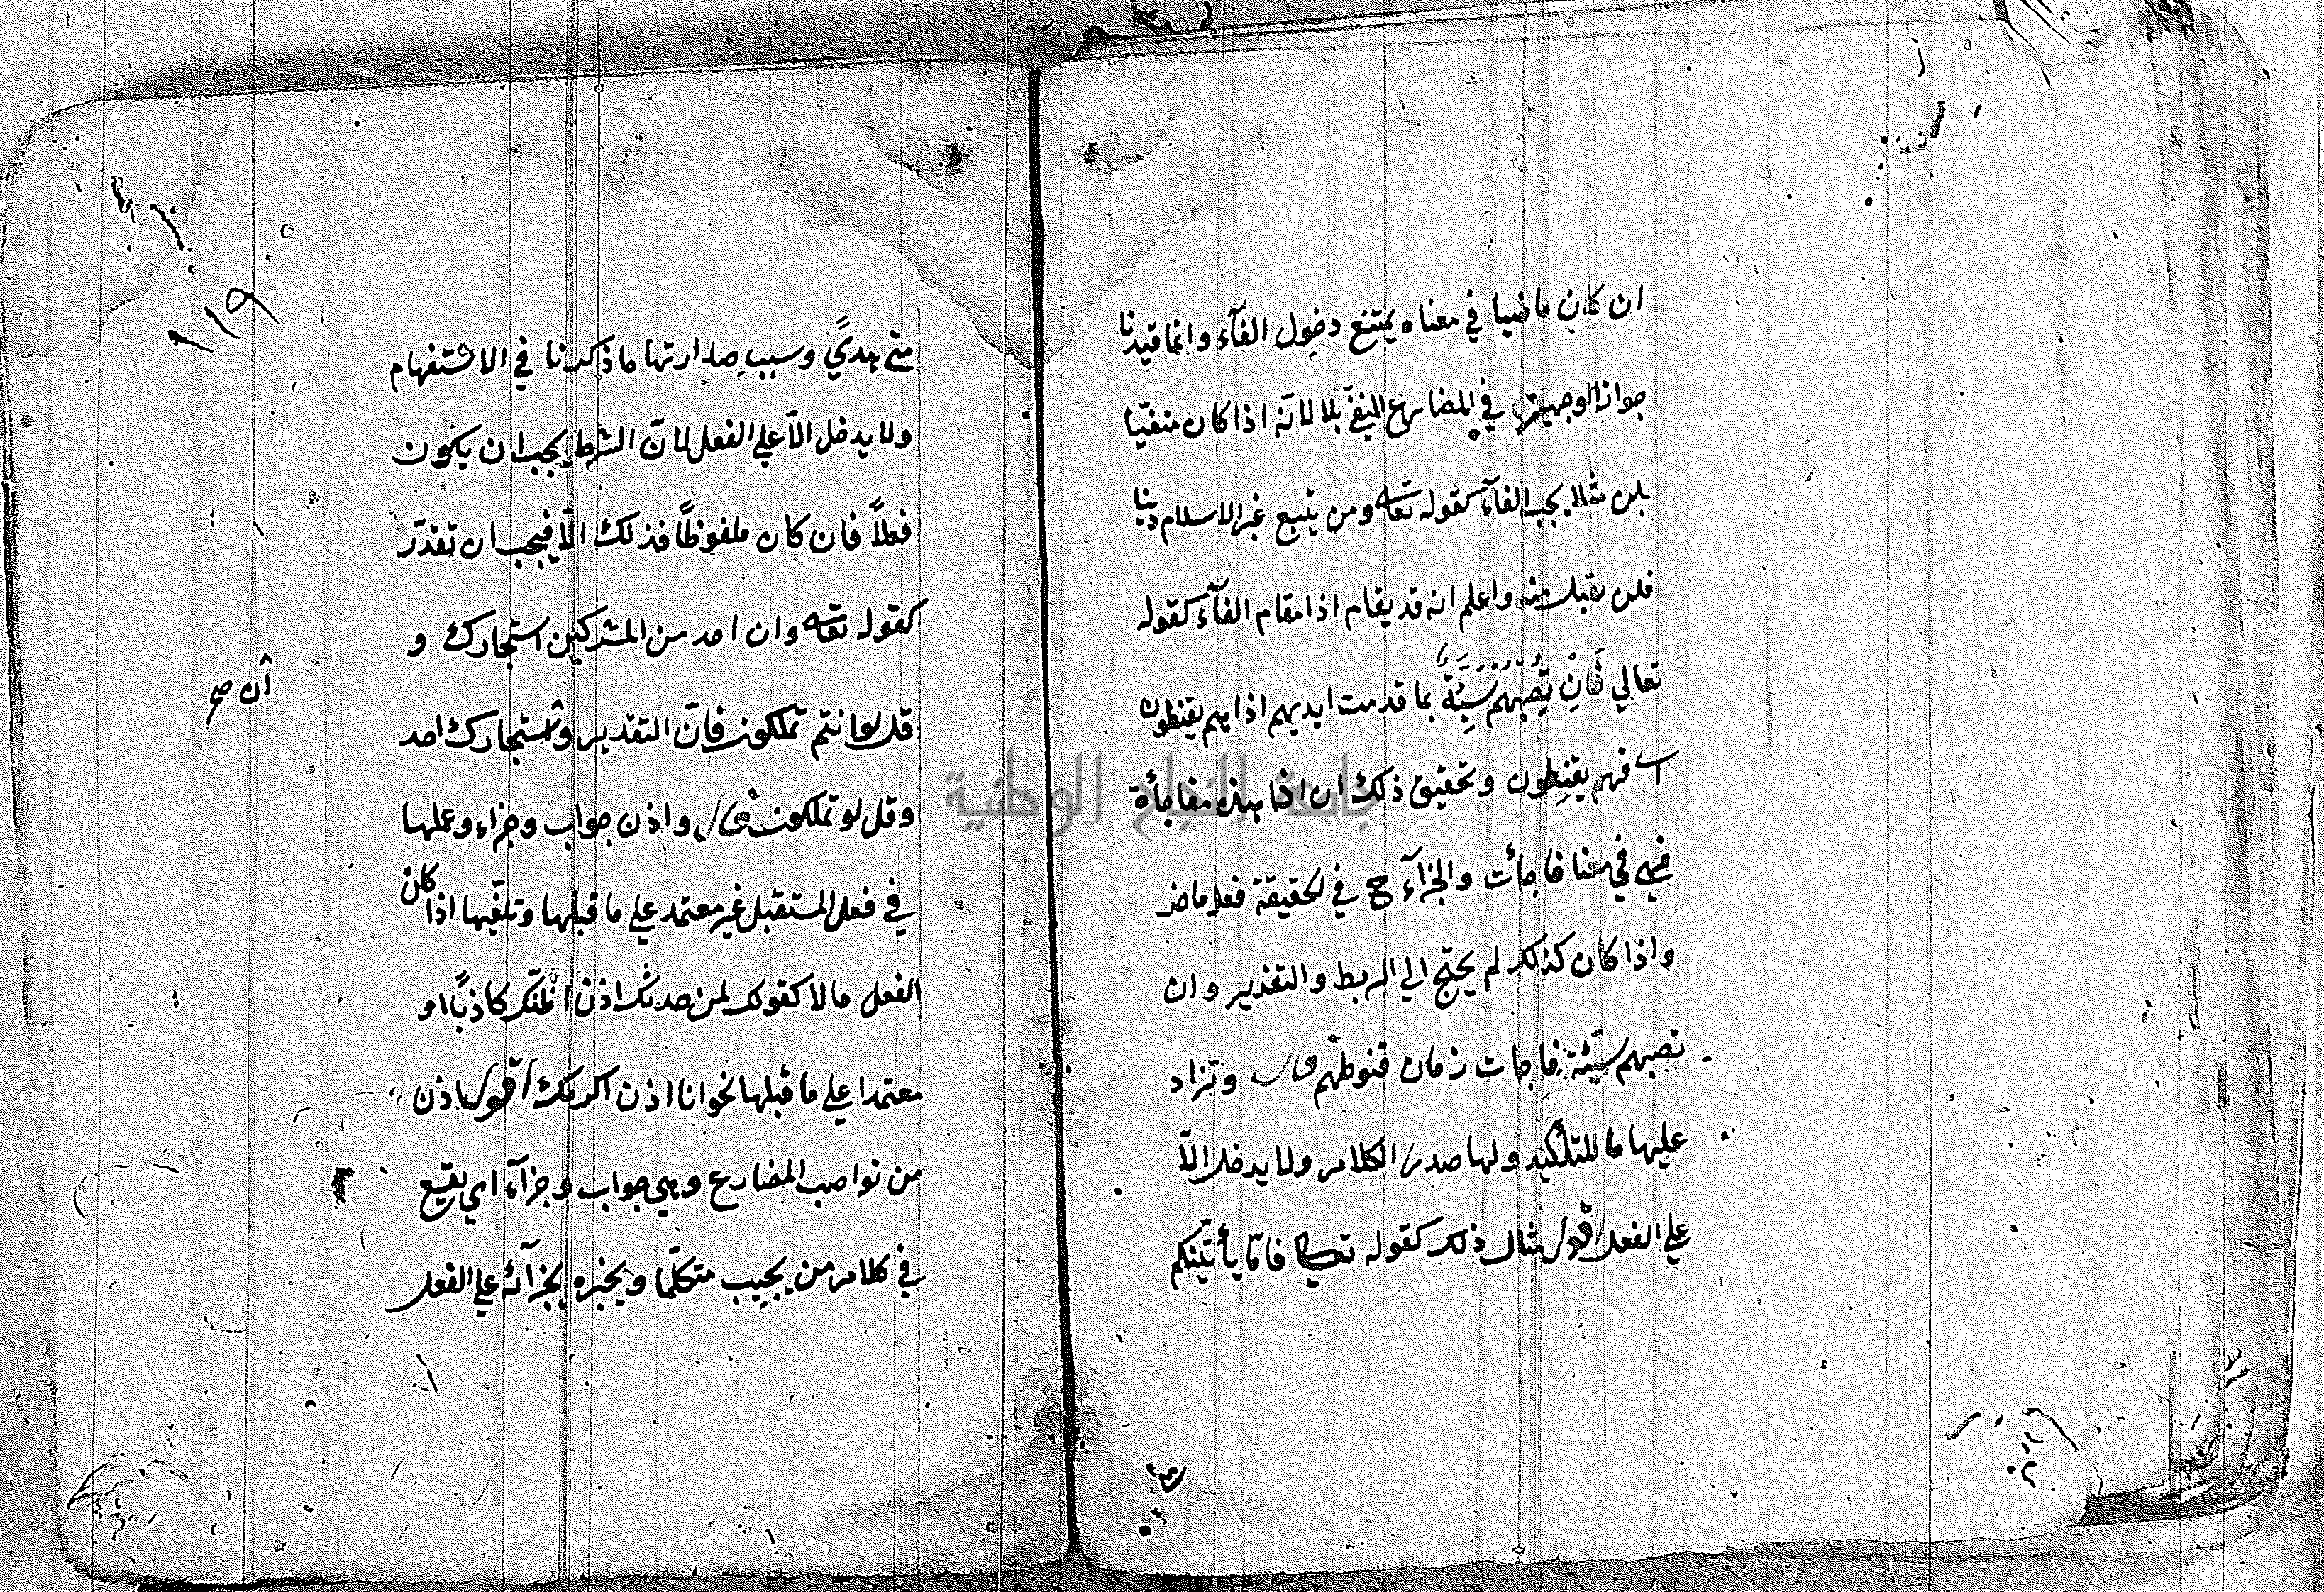 ان كان ماضيا في معناه يمتنع دخول الفآء وانما قيدنا
جواز الوجهين في المضارع المنفي بلا لانّه اذا كان منفيّا
بلن مثلا يجب الفآء كقوله تعالى ومن يتبع غير الاسلام دينا
فلن يقبل منه واعلم انه قد يقام اذا مقام الفآء كقوله
تعالي فَاِنْ تُصِبْهُمْ سَيِّئَةٌ بما قدمت ايديهم اذا هم يقنطون
اى فهم يقنطون وتحقيق ذلك ان اذا هذه مفاجأة
فهي في معنا فاجأت والجزآء ح في الحقيقة فعل ماض
واذا كان كذلك لم يحتج الي الربط والتقدير وان
تصبهم سيّئة فاجات زمان قنوطهم قال وتزاد
عليها ما للتأكيد ولها صدر الكلام ولا يدخل الّا
علي الفعل اقول مثال ذلك كقوله تعالى فامّا يأتينّكم
١١٩
منّي هديً وسبب صدارتها ما ذكرنا في الاستفهام
ولا يدخل الّا علي الفعل لانّ الشرط يجب ان يكون
فعلاً فان كان ملفوظاً فذلك الّا فيجب ان تقدّر
كقوله تعالى وان احد من المشركين استجارك و
قل لو انتم تملكون فانّ التقدير و استجارك احد
ان صح
وقل لو تملكون قال واذن جواب وجزاء وعملها
في فعل المستقبل غير معتمد علي ما قبلها وتلغيها اذا كان
الفعل حالا كقولك لمن حدثك اذن اظنّك كاذباً او
معتمدا علي ما قبلها نحو انا اذن اكرمك اقول اذن
من نواصب المضارع وهي جواب وجزآء اي يقع
في كلام من يجيب متكلّما ويخبره بجزآئه علي الفعل